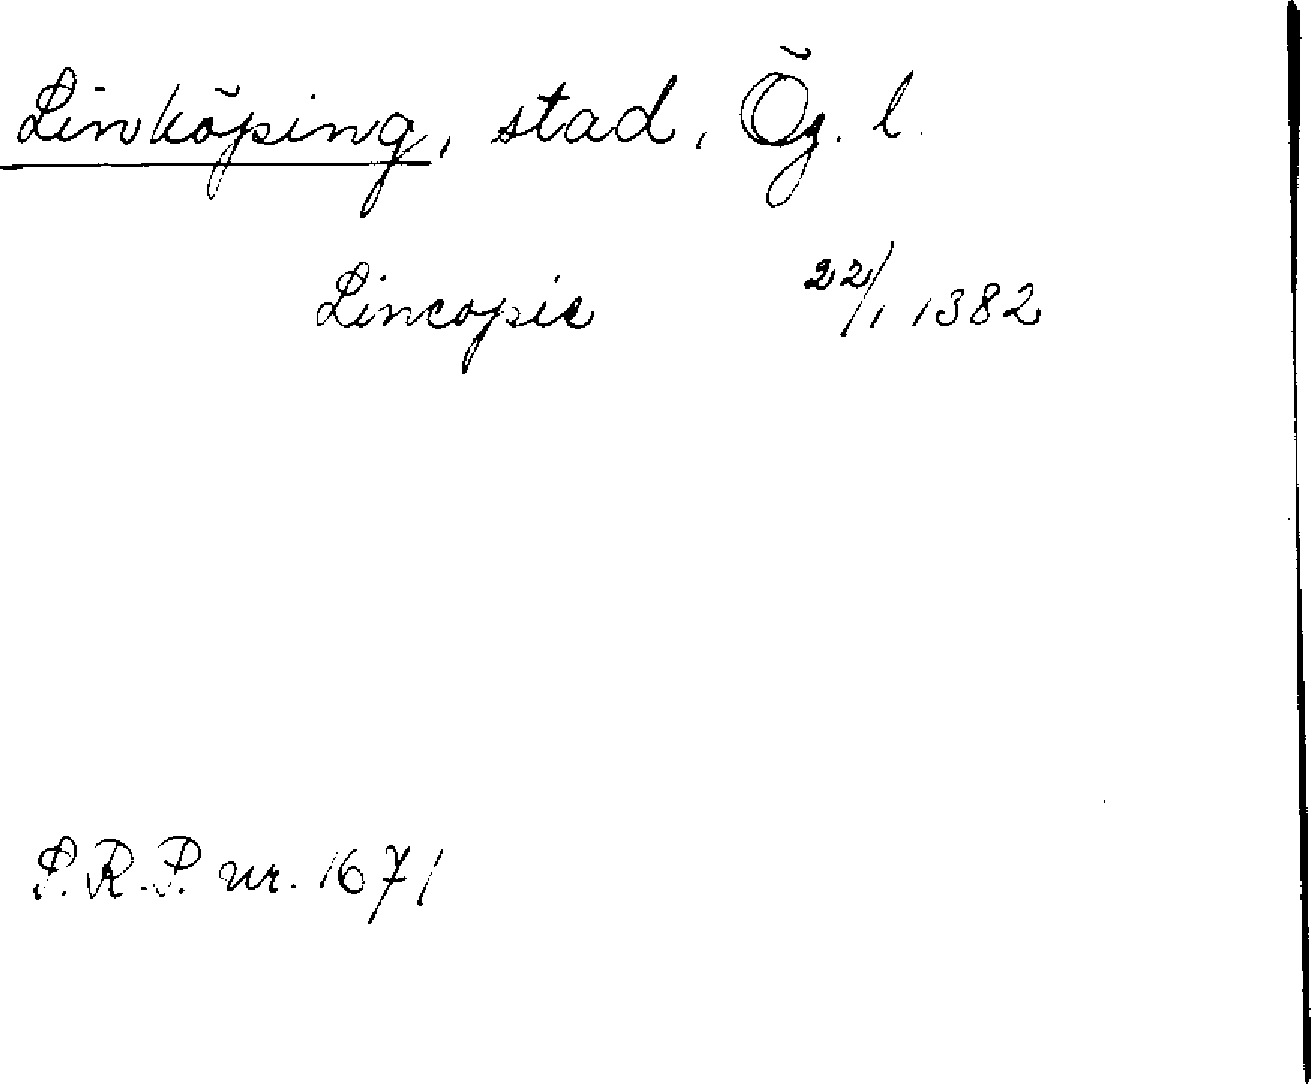 Linköping, stad, Ög. l.
Lincopie 22/1 1382
S.R.P. nr. 1671